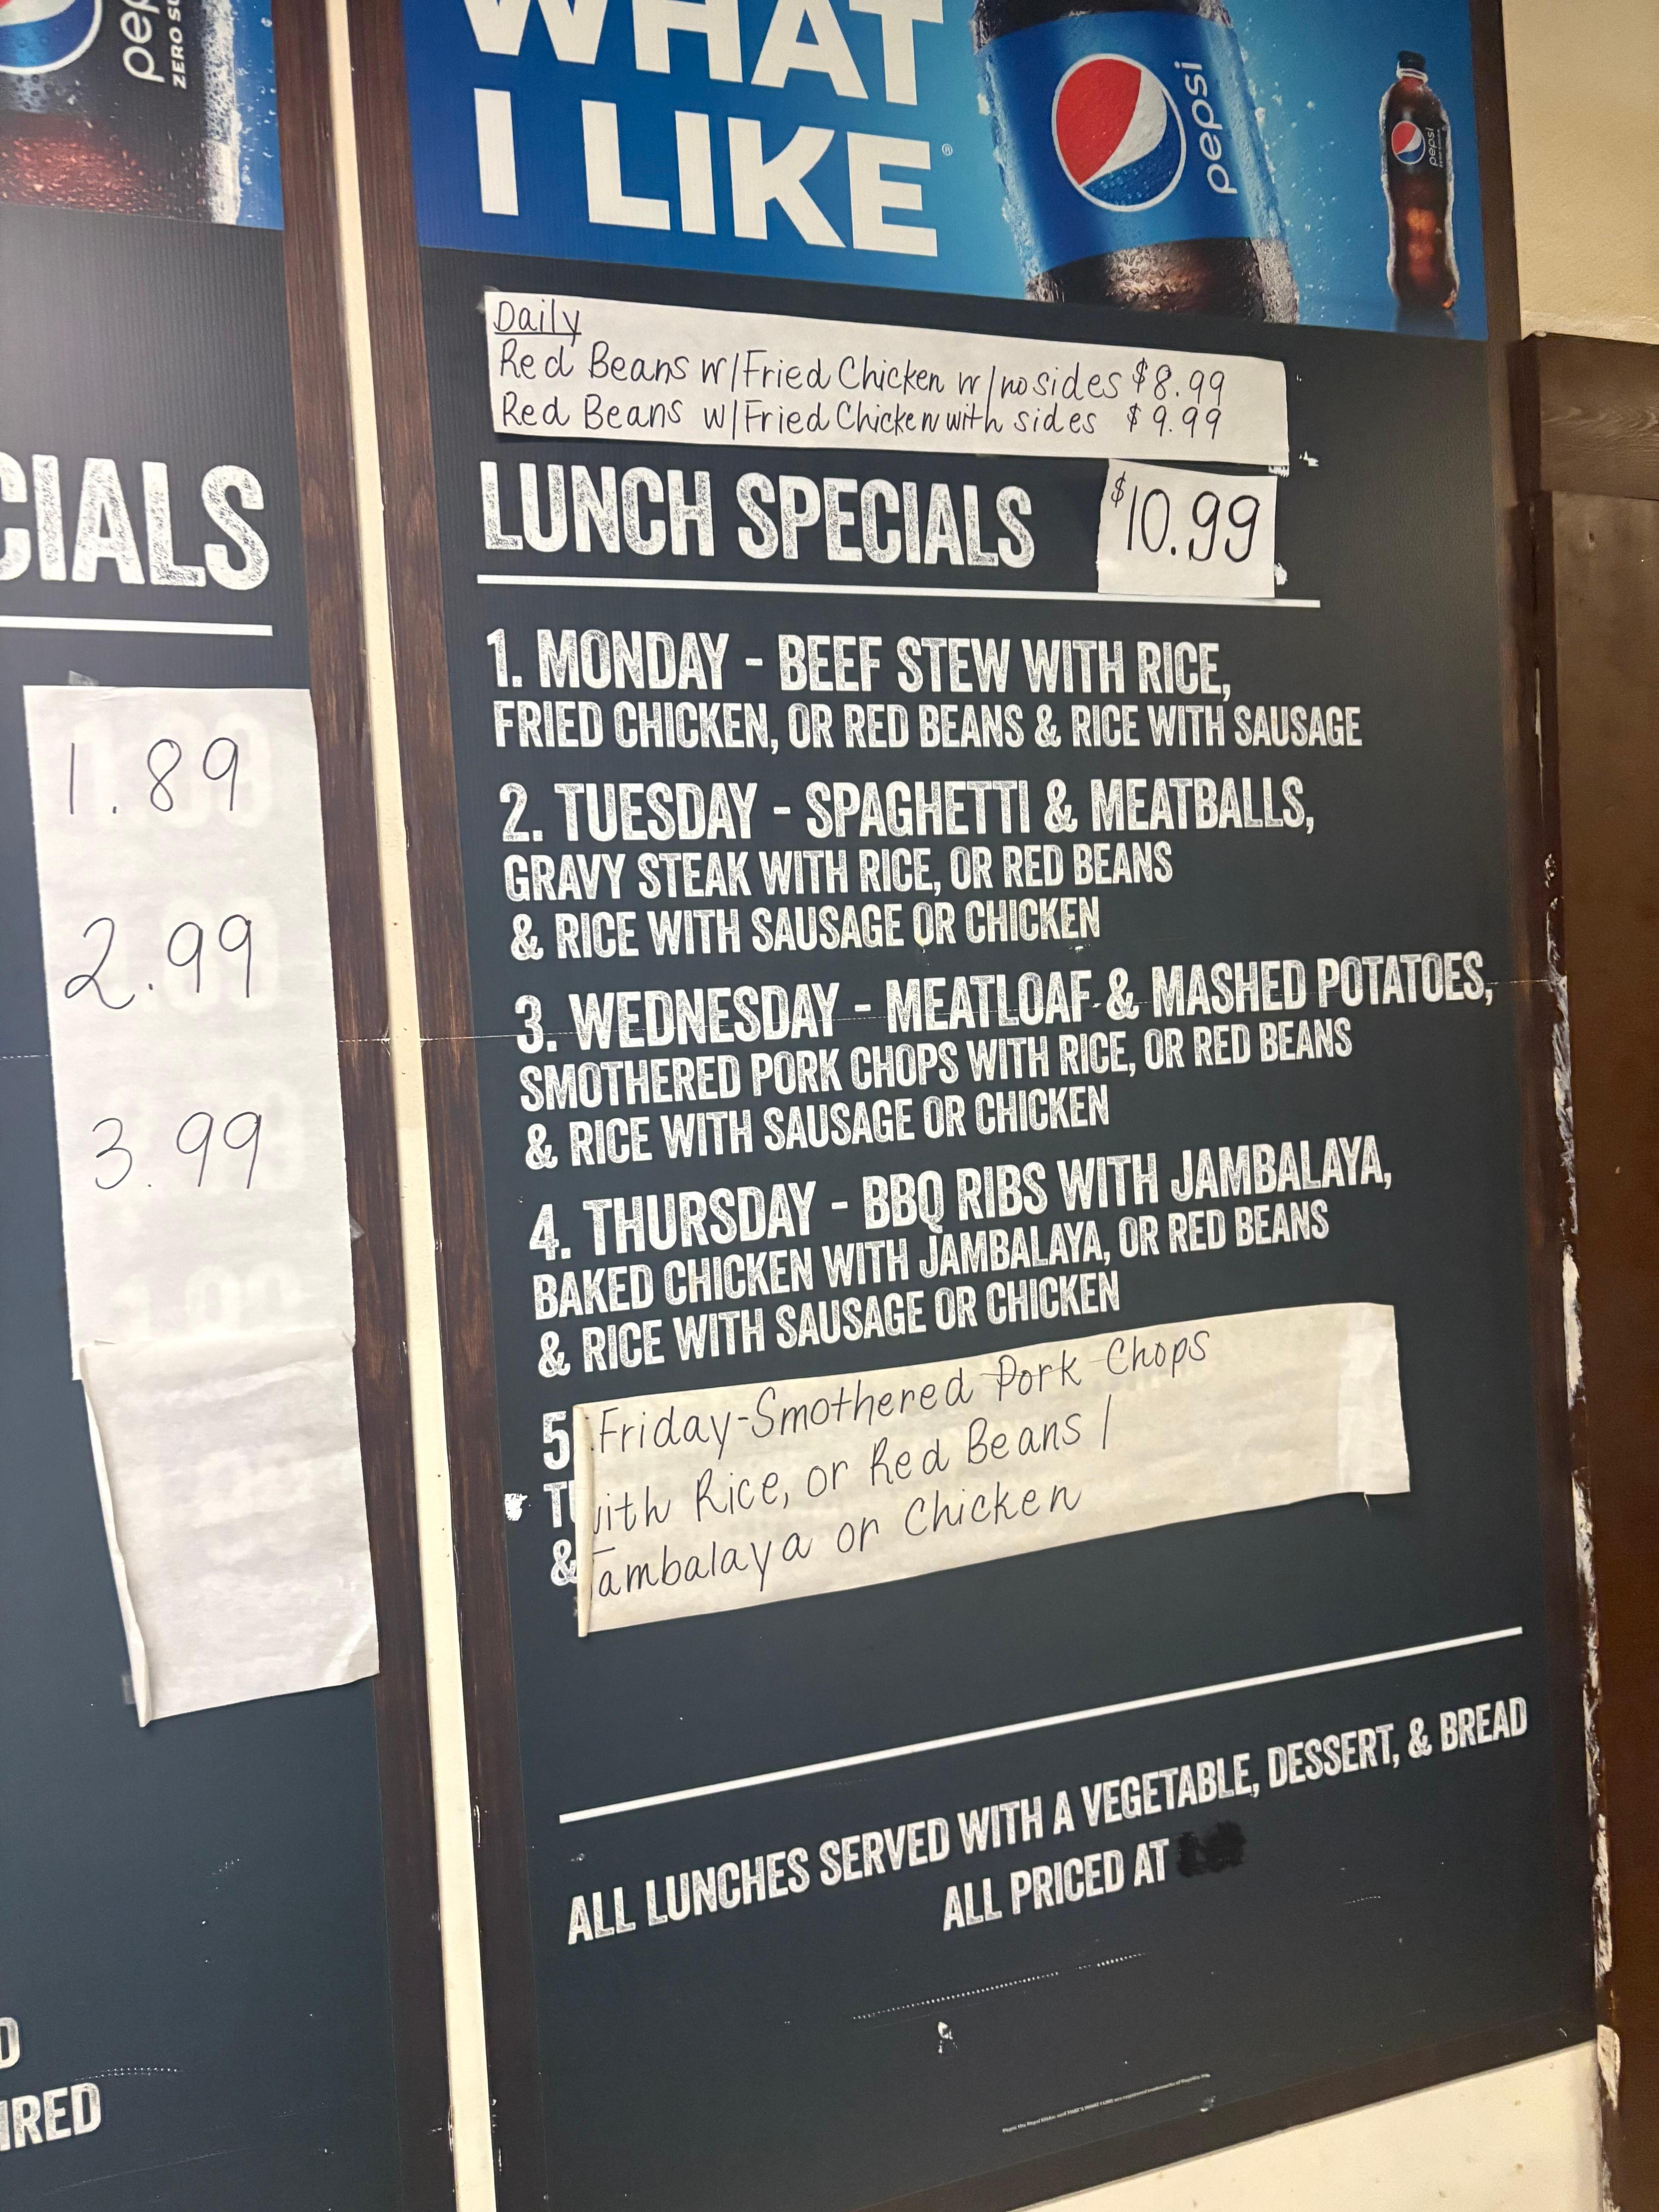 pep
ZERO SU
CIALS
1.89
2.99
3.99
IRED
WHAT
I LIKE®
pepsi
pepsi
Daily
Red Beans w/Fried Chicken w/no sides $8.99
Red Beans w/Fried Chicken with sides $9.99
LUNCH SPECIALS $10.99
1. MONDAY - BEEF STEW WITH RICE,
FRIED CHICKEN, OR RED BEANS & RICE WITH SAUSAGE
2. TUESDAY - SPAGHETTI & MEATBALLS,
GRAVY STEAK WITH RICE, OR RED BEANS
& RICE WITH SAUSAGE OR CHICKEN
3. WEDNESDAY - MEATLOAF & MASHED POTATOES,
SMOTHERED PORK CHOPS WITH RICE, OR RED BEANS
& RICE WITH SAUSAGE OR CHICKEN
4. THURSDAY - BBQ RIBS WITH JAMBALAYA,
BAKED CHICKEN WITH JAMBALAYA, OR RED BEANS
& RICE WITH SAUSAGE OR CHICKEN
5 Friday-Smothered Pork Chops
with Rice, or Red Beans /
& Jambalaya or Chicken
ALL LUNCHES SERVED WITH A VEGETABLE, DESSERT, & BREAD
ALL PRICED AT